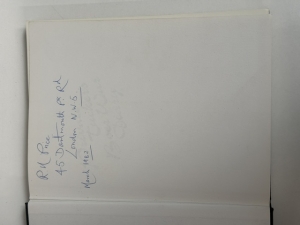 R M Price
45 Dartmouth Pk Rd
London. N.W.5
March 1982